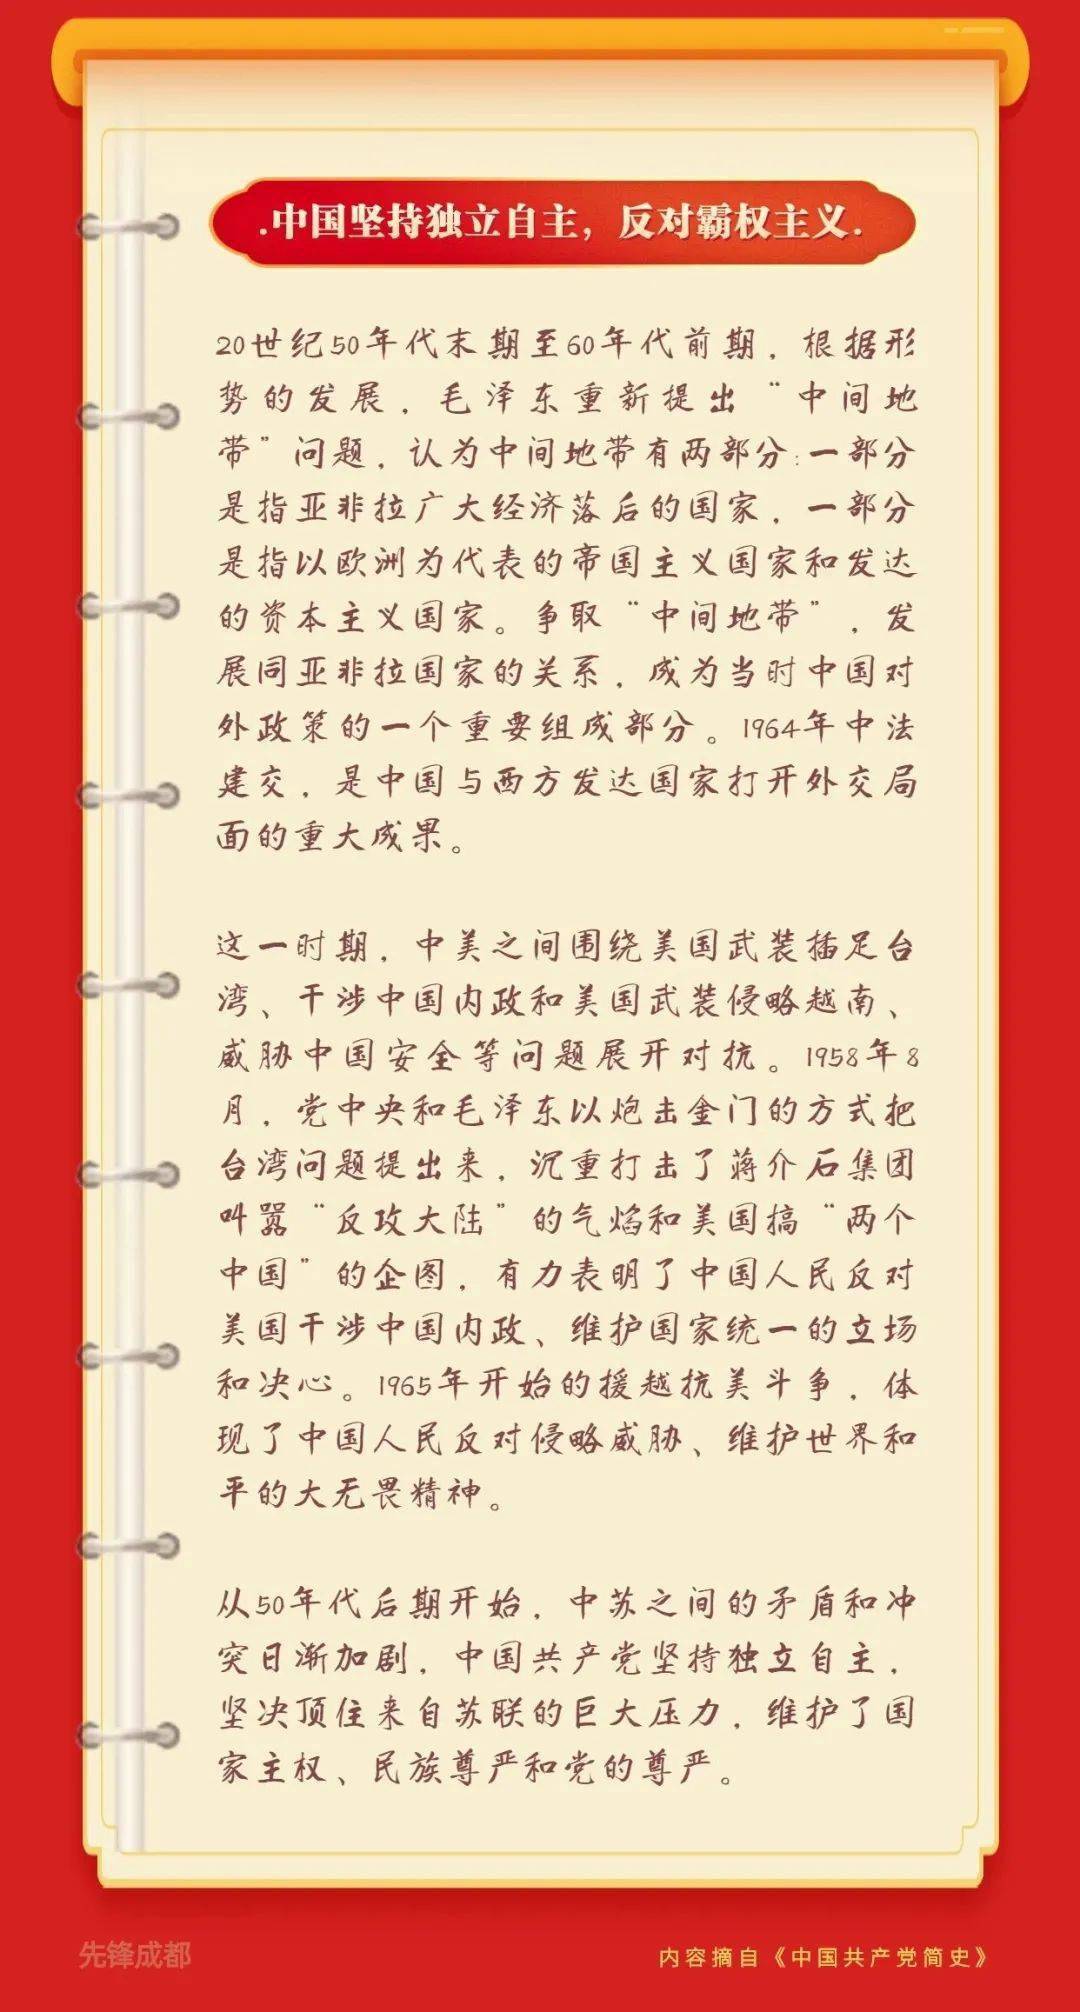 .中国坚持独立自主，反对霸权主义.
20世纪50年代末期至60年代前期，根据形
势的发展，毛泽东重新提出“中间地
带”问题，认为中间地带有两部分：一部分
是指亚非拉广大经济落后的国家，一部分
是指以欧洲为代表的帝国主义国家和发达
的资本主义国家。争取“中间地带”，发
展同亚非拉国家的关系，成为当时中国对
外政策的一个重要组成部分。1964年中法
建交，是中国与西方发达国家打开外交局
面的重大成果。
这一时期，中美之间围绕美国武装插足台
湾、干涉中国内政和美国武装侵略越南、
威胁中国安全等问题展开对抗。1958年8
月，党中央和毛泽东以炮击金门的方式把
台湾问题提出来，沉重打击了蒋介石集团
叫嚣“反攻大陆”的气焰和美国搞“两个
中国”的企图，有力表明了中国人民反对
美国干涉中国内政、维护国家统一的立场
和决心。1965年开始的援越抗美斗争，体
现了中国人民反对侵略威胁、维护世界和
平的大无畏精神。
从50年代后期开始，中苏之间的矛盾和冲
突日渐加剧，中国共产党坚持独立自主，
坚决顶住来自苏联的巨大压力，维护了国
家主权、民族尊严和党的尊严。
先锋成都
内容摘自《中国共产党简史》